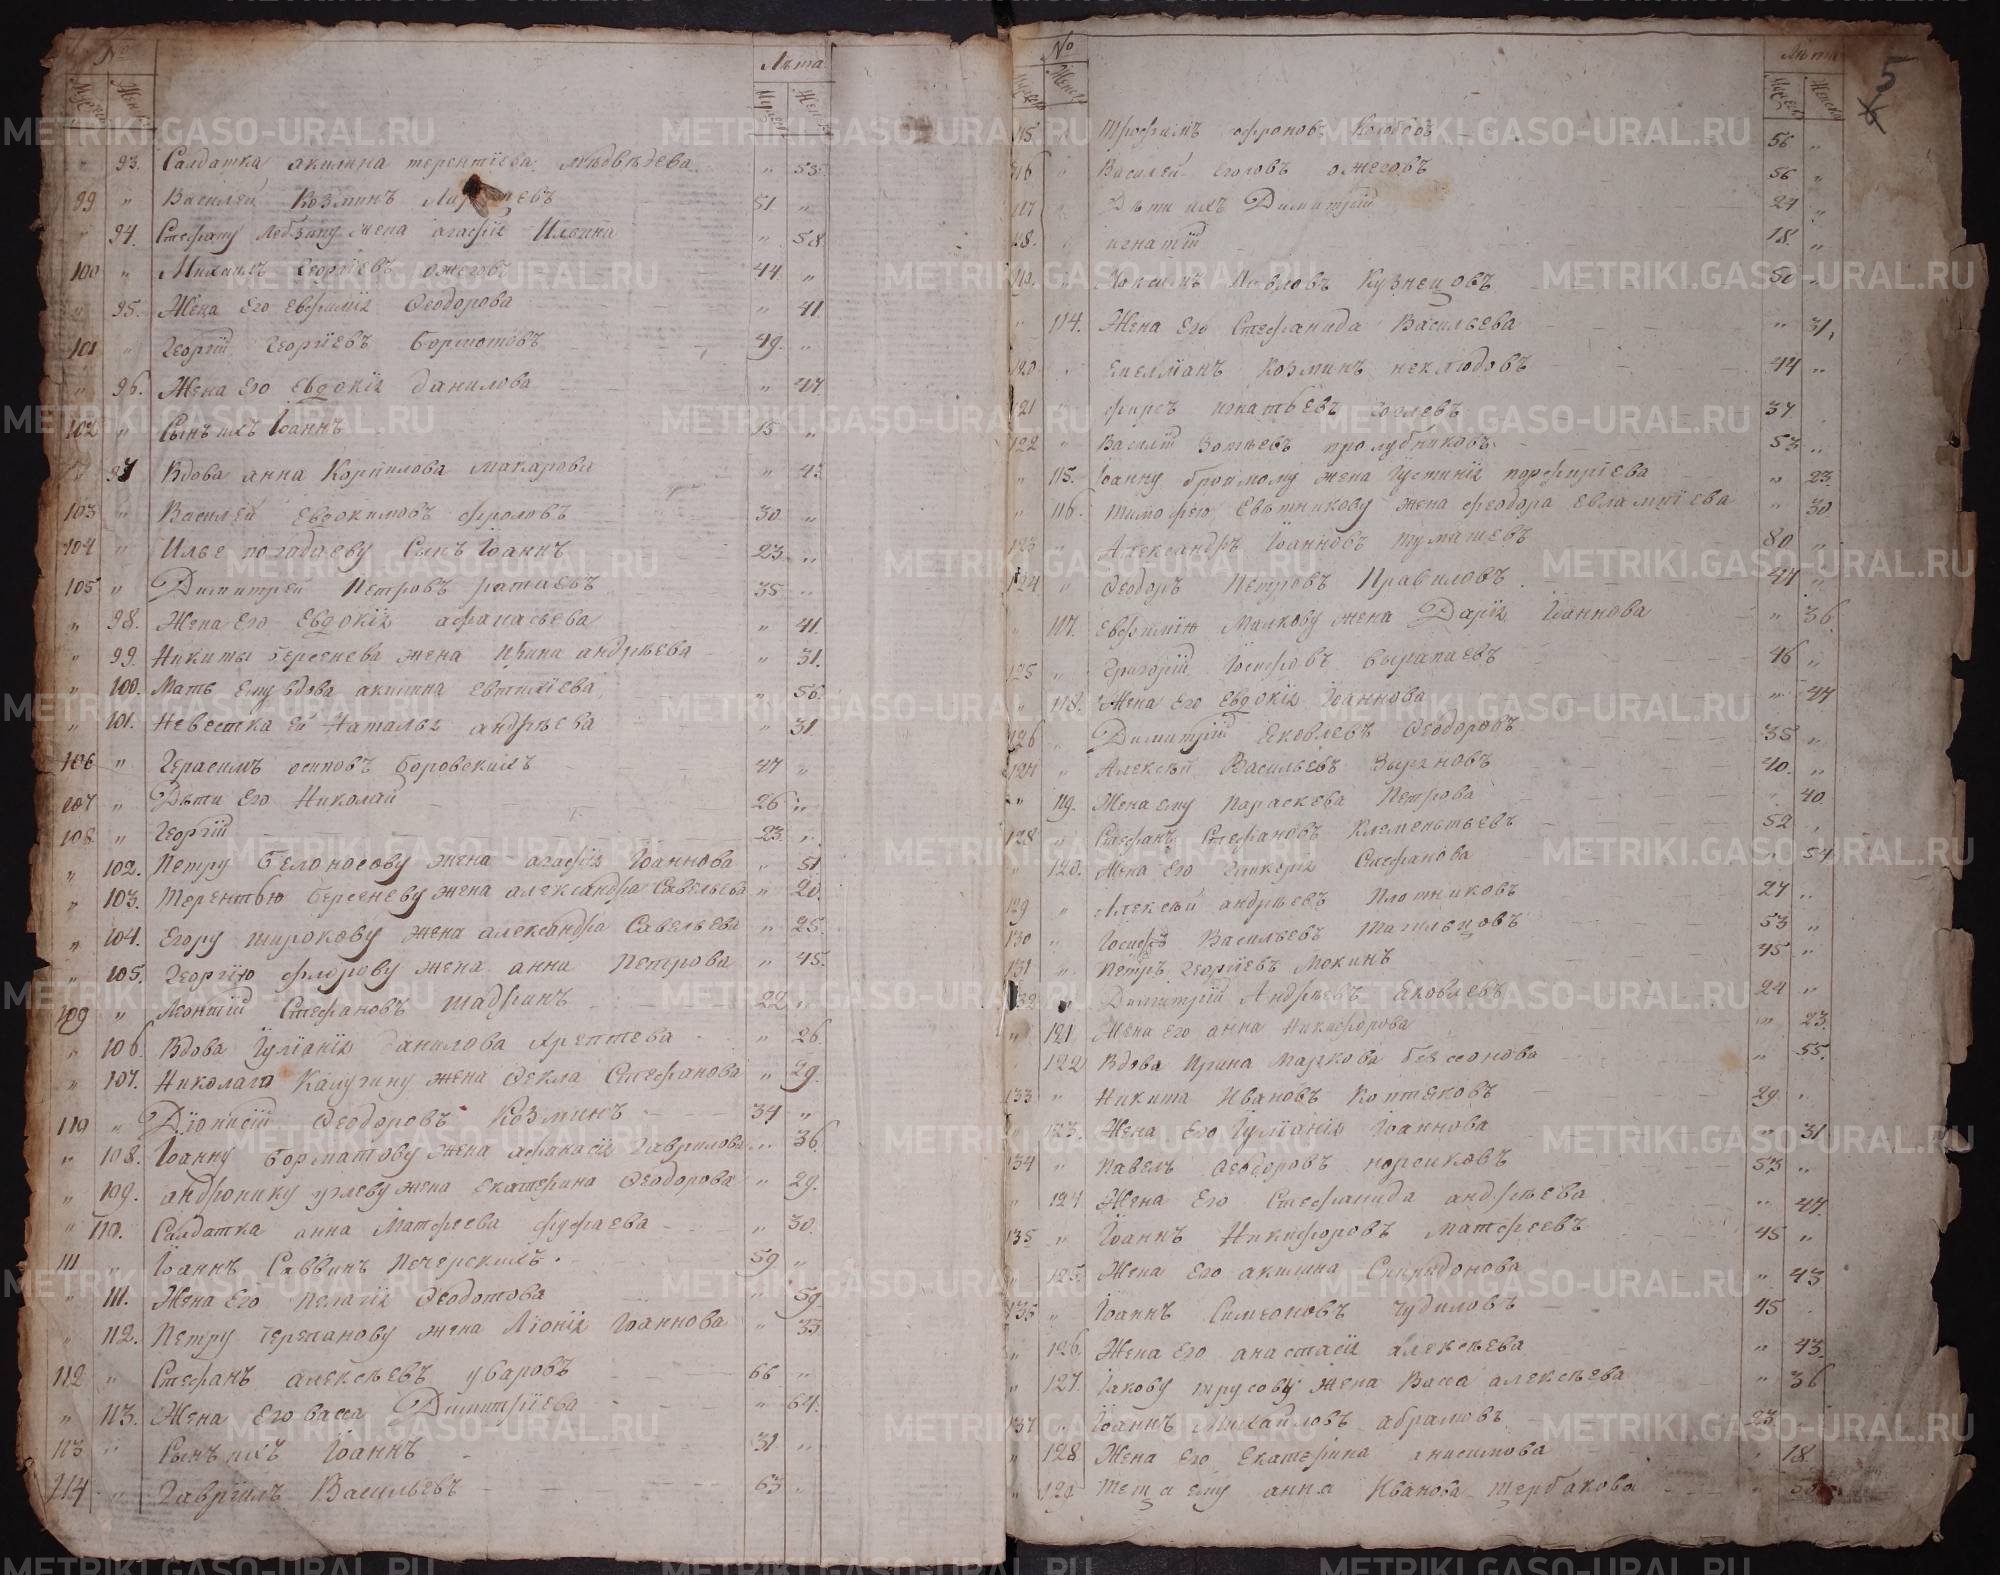 №
Лѣта
Мужск Женск
Мужск Женск
" 93. Салдатка акилина терентїева мѣдвѣдева " 53.
99 " Василей Козминъ 51 "
" 94. Стефану Лебзину жена агафїя Ильина " 58
100 " Михаилъ Георгїевъ ожеговъ 44. "
" 95. Жена Его евфимїя Ѳеодорова " 41
101 " Георгїй Георгїевъ Бормотовъ 49. "
" 96. Жена Его Евдокїя данилова " 47
102 " Сынъ ихъ Їоаннъ 15 "
" 97 Вдова анна Корнилова макарова " 43
103 " Василей Евдокимовъ фроловъ 30 "
104 " Илье погадаеву Сынъ Їоаннъ 23 "
105 " Димитрей Петровъ ратаевъ 35 "
" 98. Жена Его Евдокїя афанасьева " 41.
" 99. Никиты береснева жена Ирина андрѣева " 31.
" 100. Мать Ему вдова акилина евтихїева " 56.
" 101. Невестка ей Наталья андрѣева " 31.
106 " Герасимъ осиповъ боровскихъ 47 "
107 " Дѣти Его Николай 26 "
108 " Георгїй 23. "
" 102. Петру Белоносову жена агафїя Їоаннова " 51
" 103. Терентью береснeву жена александра Савельева " 20.
" 104. Егору широкову жена александра Савельева " 25.
" 105. Георгїю флорову жена анна Петрова " 45.
109 " Леонтїй Стефановъ шадринъ 22 "
" 106. Вдова Їулїанїя данилова " 26.
" 107. Николаю Калугину жена Ѳекла Стефанова " 29.
110 " Дїонисїй Ѳеодоровъ Козминъ 34 "
" 108. Їоанну борматову жена афанасїя Гаврилова " 36.
" 109. андронику углеву жена Екатерина Ѳеодорова " 29.
" 110. Салдатка анна Матфеева " 30.
111 " Їоаннъ Саввинъ Печерскихъ. 59 "
" 111. Жена Его пелагїя Ѳеодотова " 59
" 112. Петру черепанову жена Їоаннова " 33
112 " Стефанъ алексѣевъ уваровъ 66 "
" 113. Жена Его васса Димитрїева " 64.
113 " Сынъ ихъ Їоаннъ 31 "
114 " Гаврїилъ Васильевъ 63 "
№
Лѣта
5
6
Мужск Женск
Мужск Женск
115 " Трофимъ 56 "
116 " Василей Егоровъ ожеговъ 56 "
117 " Дѣти ихъ Димитрїй 24 "
118. " игнатїй 18. "
119. " Павловъ Кузнецовъ 50 "
" 114. Жена Его Стефанида Васильева " 31,
120 " Емелїанъ Козминъ неклюдовъ 44 "
121 " фирсъ игнатьевъ 37
122 " Василїй Зотьевъ пролубниковъ. 53 "
" 115. Їоанну жена Їустинїя порфирїева " 23.
" 116. тимофею Евѣтникову жена феодора Евлампїева " 30.
123 " Александръ Їоанновъ тумашевъ 80 "
124 " Ѳеодоръ Петровъ Правиловъ 47 "
" 117. Евфимїю Малкову жена Дарїя Їоаннова " 36.
125 " Григорїй Їосифовъ 46 "
" 118. Жена Его Евдокїя Їоаннова " 47
126 " Димитрїй Яковлевъ Ѳеодоровъ 35 "
127 " Алексѣй Васильевъ Зыряновъ 40. "
" 119. Жена ему Параскева Петрова " 40.
128 " Стефанъ Стефановъ Клементьевъ 52 "
" 120. Жена Его гликерїя Стефанова " 54.
129 " Алексѣй андрѣевъ Плотниковъ 27 "
130 " Їосифъ Васильевъ тагильцовъ 53 "
131 " Петръ Георгїевъ Мокинъ 45 "
132 " Димитрїй Андрѣевъ Яковлевъ 24 "
" 121 Жена Его анна Никифорова " 23.
122 Вдова Ирина Маркова бессонова " 55.
133 " Никита Ивановъ Коптяковъ 29 "
123. Жена Его Їулїанїя Їоаннова " 31
134 " Павелъ Ѳеодоровъ 53 "
" 124 Жена Его Стефанида андрѣева " 47.
135 " Їоаннъ Никифоровъ матфеевъ 45 "
" 125. Жена Его акилина Спиридонова " 43
135 " Їоаннъ Симеоновъ чудиловъ 45
" 126. Жена Его анастасїя алексѣева " 43.
" 127. Їакову трусову жена Васса алексѣева " 36
137 " Їоаннъ Михайловъ абрамовъ 23.
" 128 Жена Его Екатерина анисимова 18.
" 129 Теща ему анна Иванова щербакова